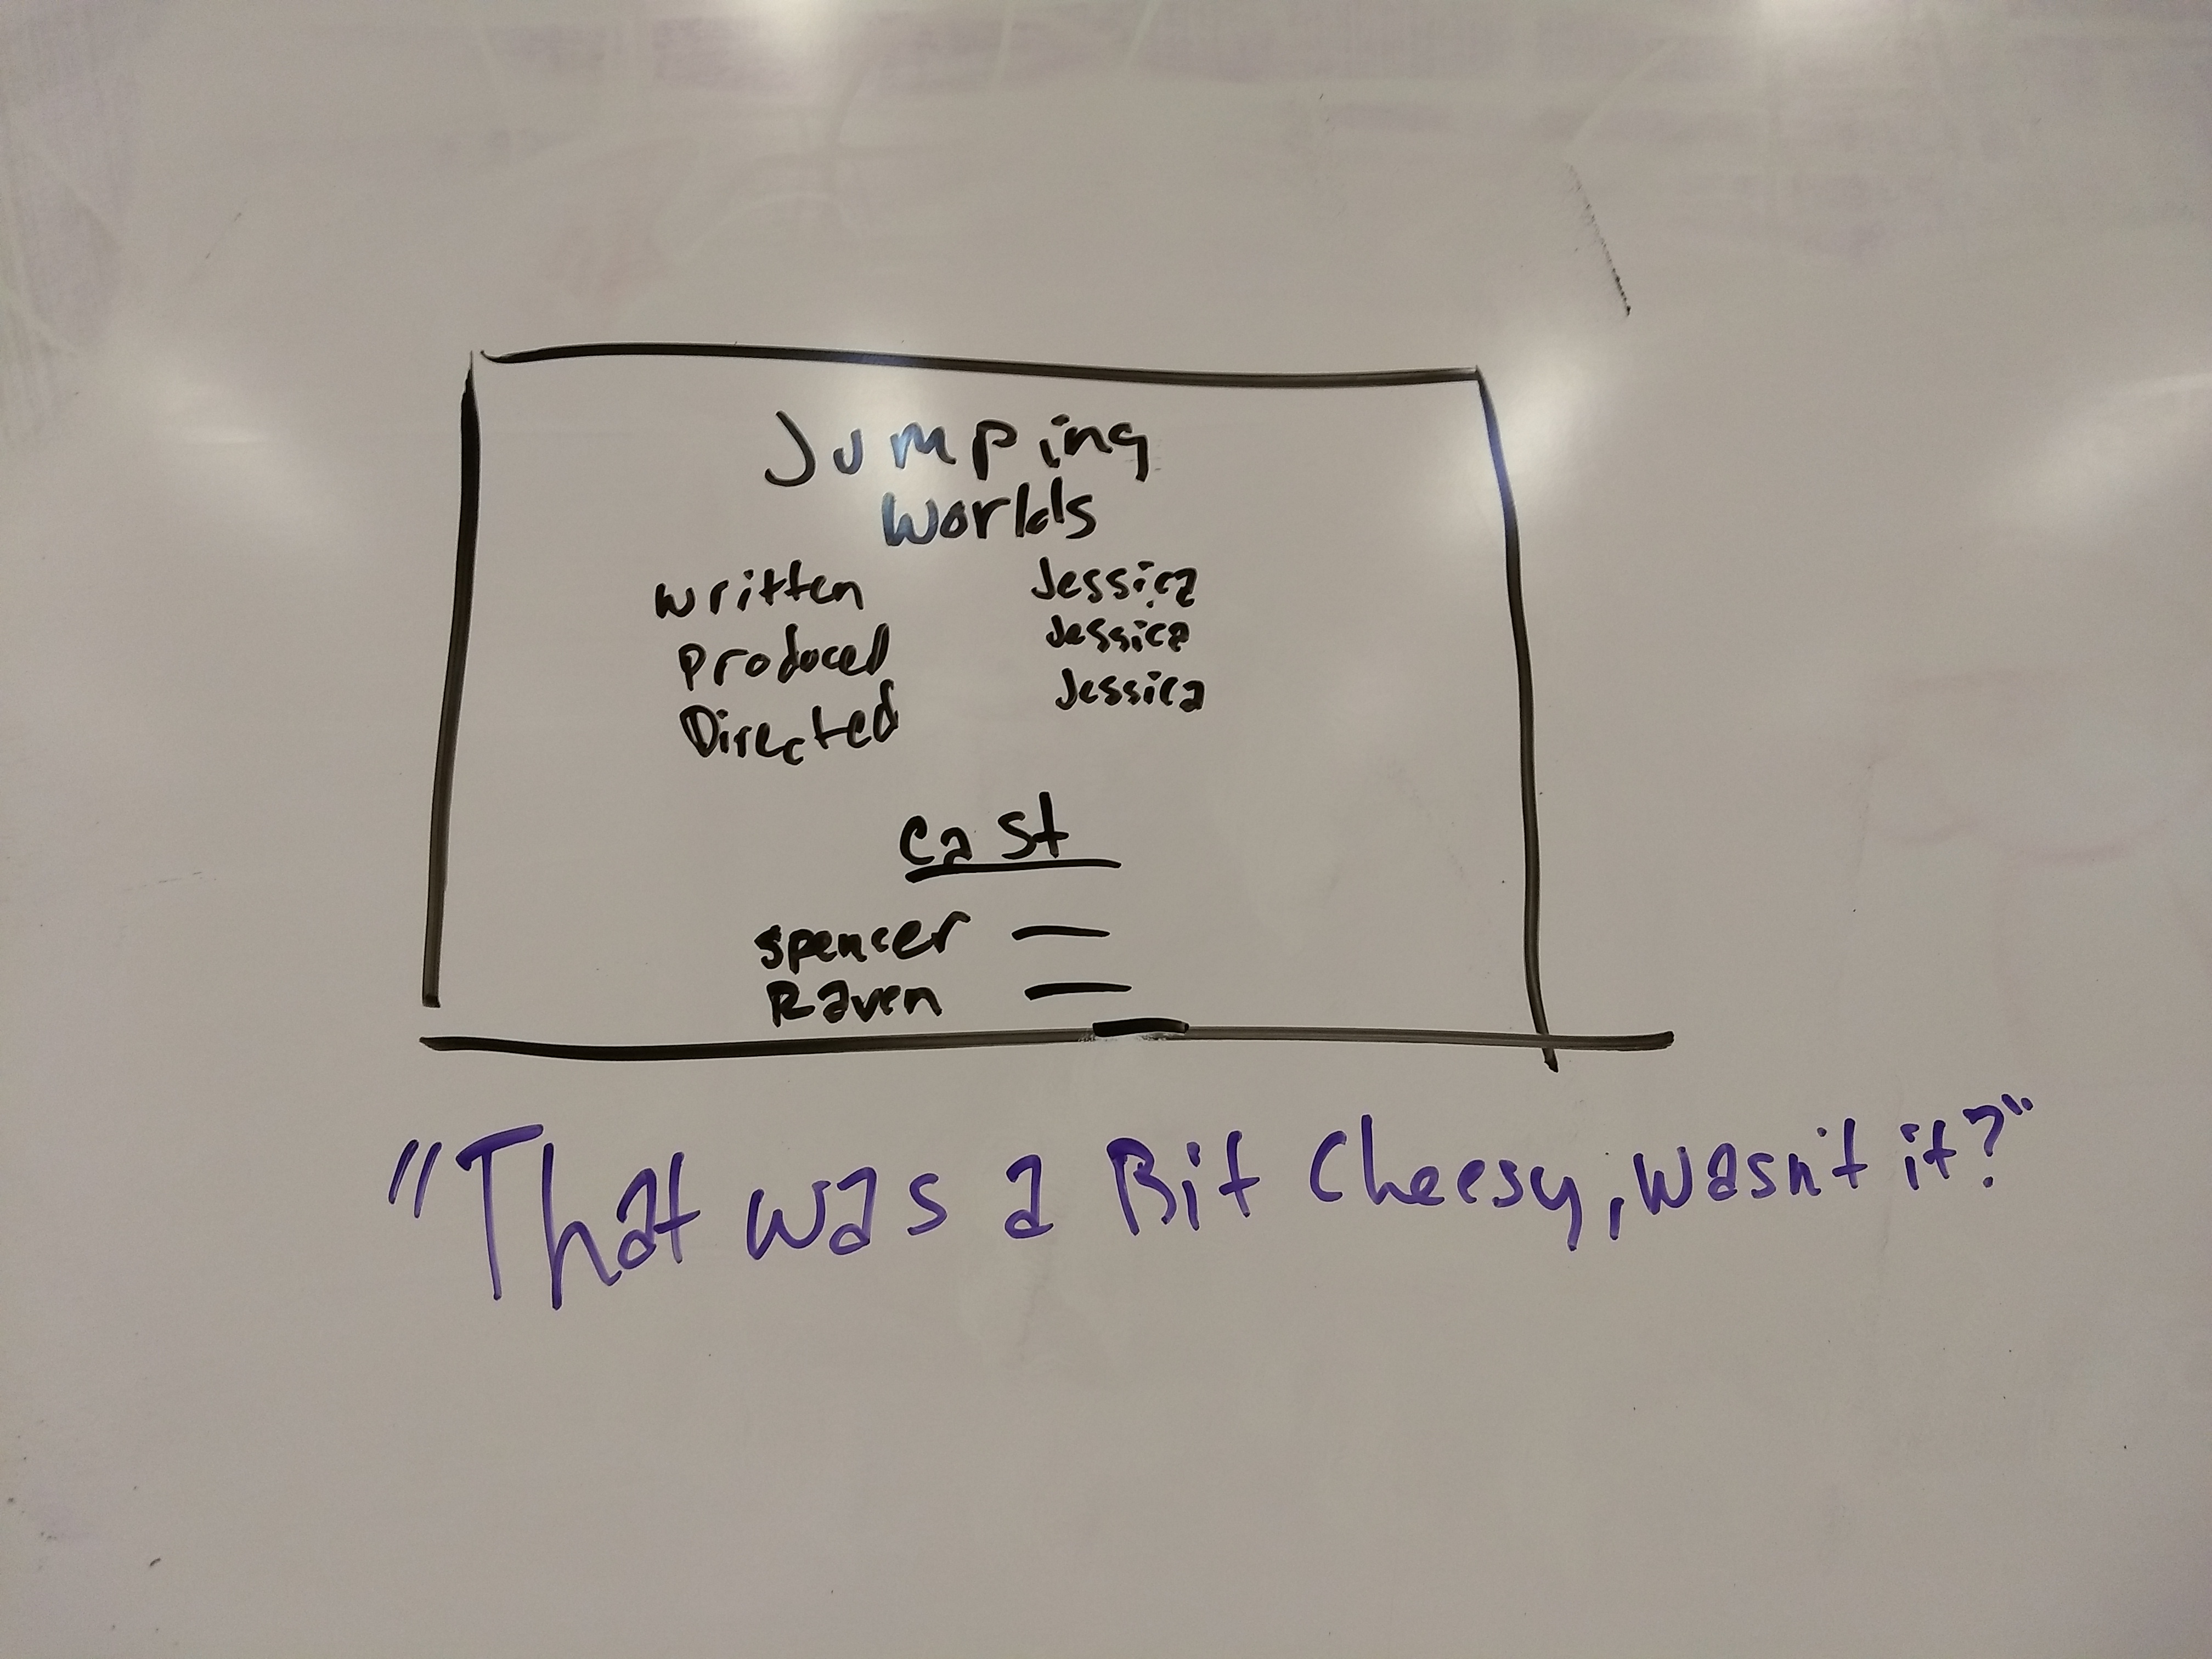 Jumping
Worlds
Written Jessica
Produced Jessica
Directed Jessica
Cast
Spencer —
Raven —
"That was a Bit Cheesy, wasn't it?"